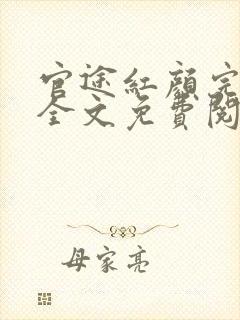 官途红颜完
全文免费阅
母家亮